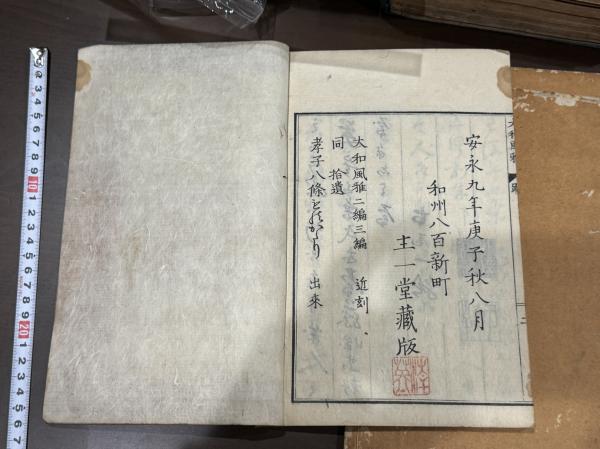 安永九年庚子秋八月
和州八百新町
主一堂藏版
大和風雅二編三編 近刻
同 拾遺
孝子八條をのがり 出來
大和風雅
跋
二
1 2 3 4 5 6 7 8 9 10 1 2 3 4 5 6 7 8 9 20 1 2 3 4 5 6 7